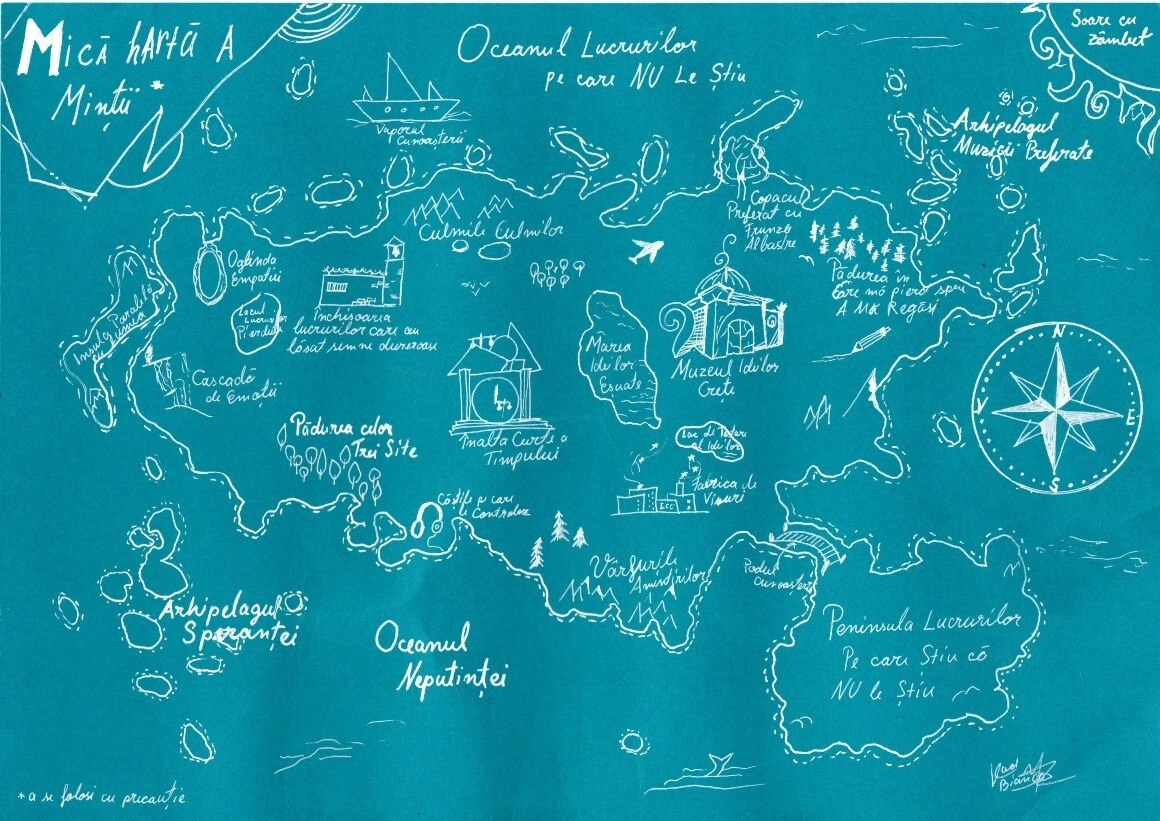 Mică hartă a
Minții *
Oceanul Lucrurilor
pe care NU Le Știu
Soare cu
zâmbet
Vaporul
Cunoașterii
Arhipelagul
Muzicii Preferate
Culmile Culmilor
Copacul
Preferat cu
Frunze
Albastre
Oglinda
Empatiei
Pădurea în
Care mă pierd spre
A Mă Regăsi
Lacul
Lucrurilor
Pierdute
Închisoarea
lucrurilor care au
lăsat semne dureroase
Insula Paralelă
cu Lumea
Marea
Ideilor
Eșuate
Muzeul Ideilor
Crețe
Cascadă
de Emoții
N
V
E
S
Pădurea celor
Trei Site
Înalta Curte a
Timpului
Lac de
al Ideilor
Fabrica de
Visuri
Căștile pe care
le Controlez
Vârfurile
Amintirilor
Podul
Cunoașterii
Arhipelagul
Speranței
Oceanul
Neputinței
Peninsula Lucrurilor
Pe care Știu că
NU le Știu
Vlad
* a se folosi cu precauție